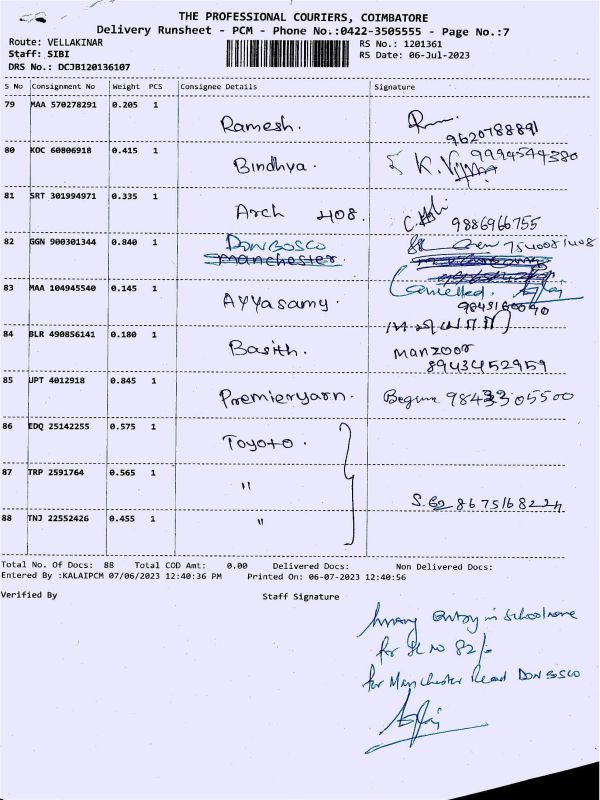 THE PROFESSIONAL COURIERS, COIMBATORE
Delivery Runsheet - PCM - Phone No.:0422-3505555 - Page No.:7
Route: VELLAKINAR
RS No.: 1201361
Staff: SIBI
RS Date: 06-Jul-2023
DRS No.: DCJB120136107
S No Consignment No Weight PCS Consignee Details Signature
79 MAA 570278291 0.205 1 Ramesh. 9620788891
80 KOC 60806918 0.415 1 Bindhya. K. 9994544380
81 SRT 301994971 0.335 1 Arch 408. 9886966755
82 GGN 900301344 0.840 1 DONBOSCO 7540081408
Manchester.
Cancelled.
83 MAA 104945540 0.145 1 Ayyasamy.
84 BLR 490856141 0.180 1 Basith. Manzoor
8943452959
85 UPT 4012918 0.845 1 Premieryarn. Begum 9843305500
86 EDQ 25142255 0.575 1 Toyoto.
87 TRP 2591764 0.565 1 "
8675168224
88 TNJ 22552426 0.455 1 "
Total No. Of Docs: 88 Total COD Amt: 0.00 Delivered Docs: Non Delivered Docs:
Entered By :KALAIPCM 07/06/2023 12:40:36 PM Printed On: 06-07-2023 12:40:56
Verified By Staff Signature
entry in School name
for Sl no 82/-
for Manchester Read DON BOSCO